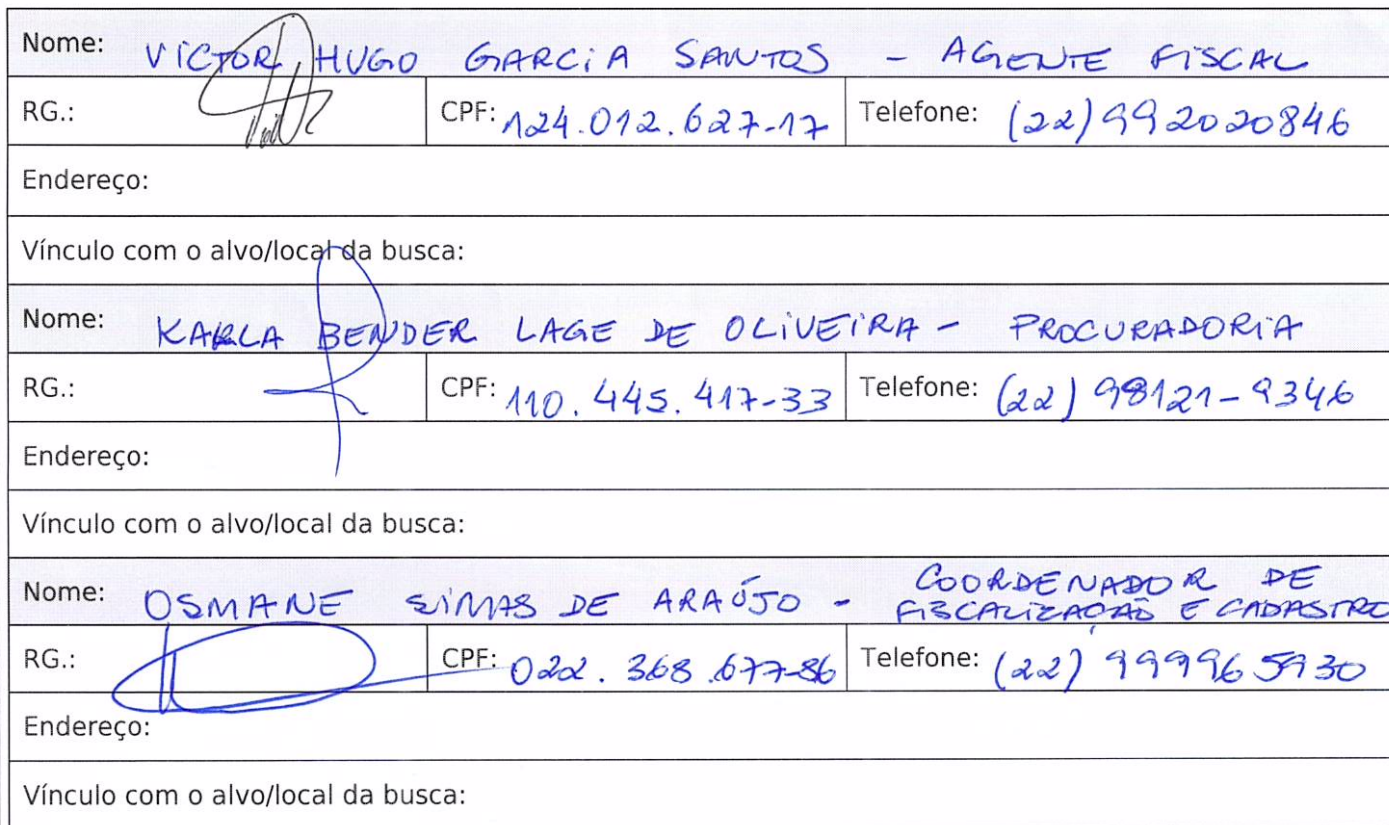 Nome: VICTOR HUGO GARCIA SANTOS - AGENTE FISCAL
RG.: CPF: 124.012.627-17 Telefone: (22) 992020846
Endereço:
Vínculo com o alvo/local da busca:
Nome: KARLA BENDER LAGE DE OLIVEIRA - PROCURADORIA
RG.: CPF: 110.445.417-33 Telefone: (22) 98121-9346
Endereço:
Vínculo com o alvo/local da busca:
Nome: OSMANE SIMAS DE ARAÚJO - COORDENADOR DE
FISCALIZAÇÃO E CADASTRO
RG.: CPF: 022.368.677-86 Telefone: (22) 999965930
Endereço:
Vínculo com o alvo/local da busca: